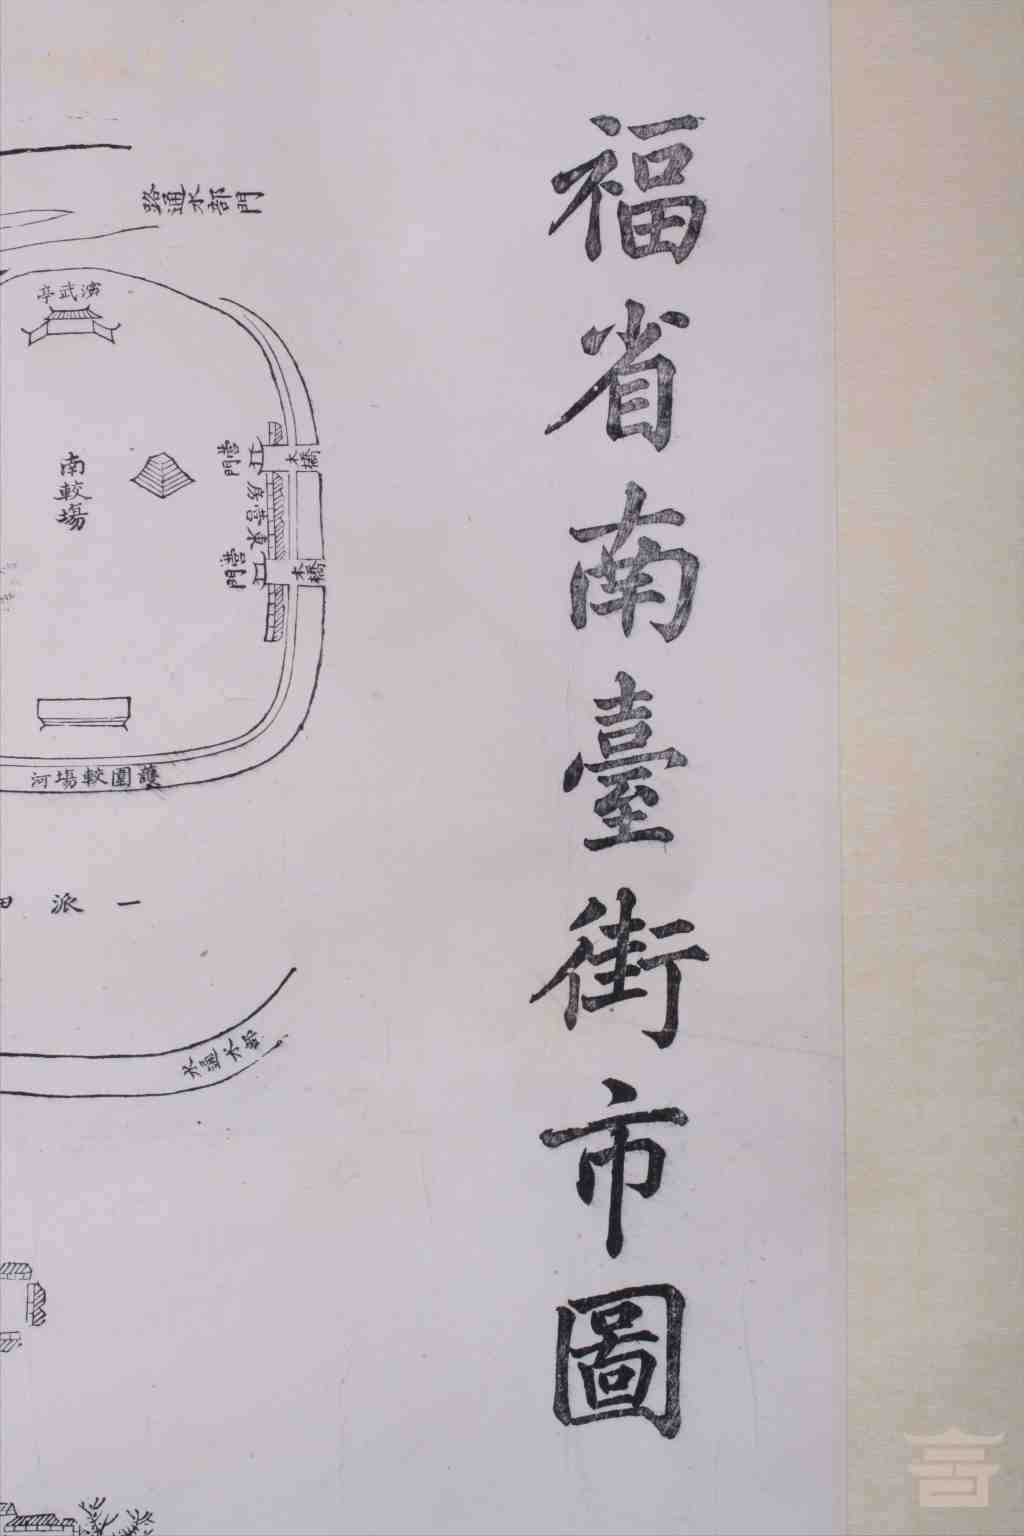 福省南臺街市圖
路通水部門
演武亭
南較塲
營門
木橋
營門
木橋
護圍較塲河
一派
水通水部